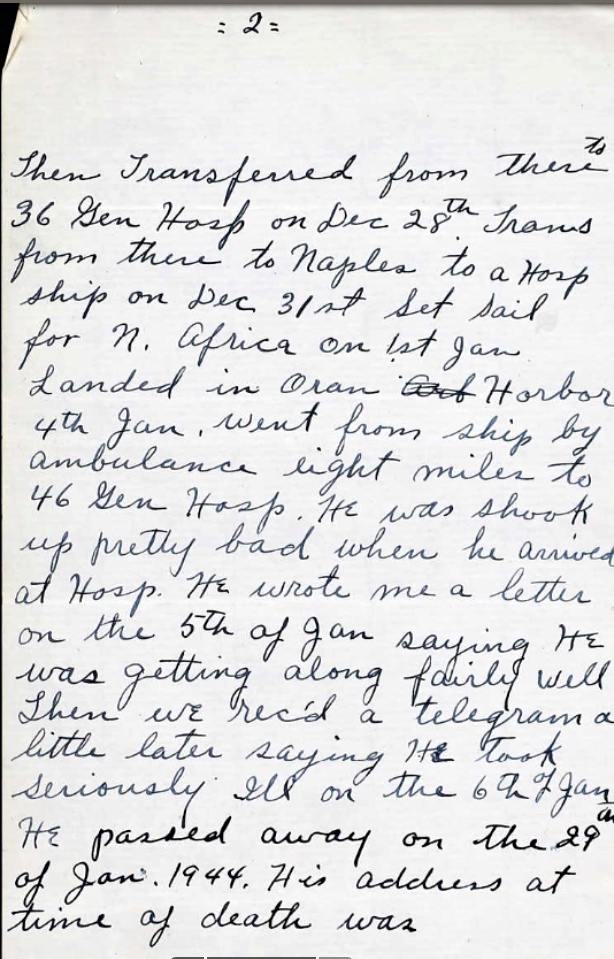 = 2 =
Then Transferred from there to
36 Gen Hosp on Dec 28th. Trans
from there to Naples to a Hosp
ship on Dec 31st Set Sail
for N. Africa on 1st Jan
Landed in Oran Horbor
4th Jan. went from ship by
ambulance eight miles to
46 Gen Hosp. He was shook
up pretty bad when he arrived
at Hosp. He wrote me a letter
on the 5th of Jan saying He
was getting along fairly well
Then we rec'd a telegram a
little later saying He took
seriously Ill on the 6th of Jan
He passed away on the 29
of Jan. 1944. His address at
time of death was